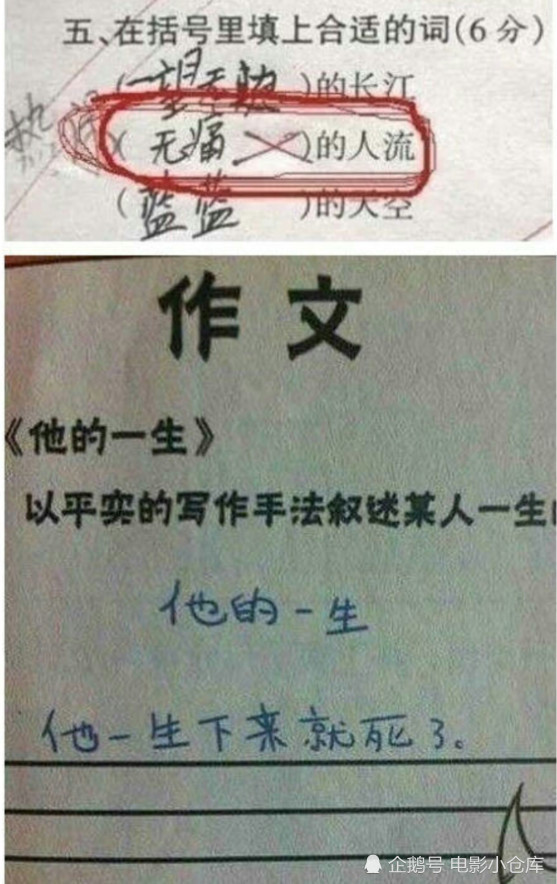 五、在括号里填上合适的词(6分)
(一望无际)的长江
(无痛)的人流
(蓝蓝)的天空
热闹
作文
《他的一生》
以平实的写作手法叙述某人一生
他的一生
他一生下来就死了。
企鹅号 电影小仓库